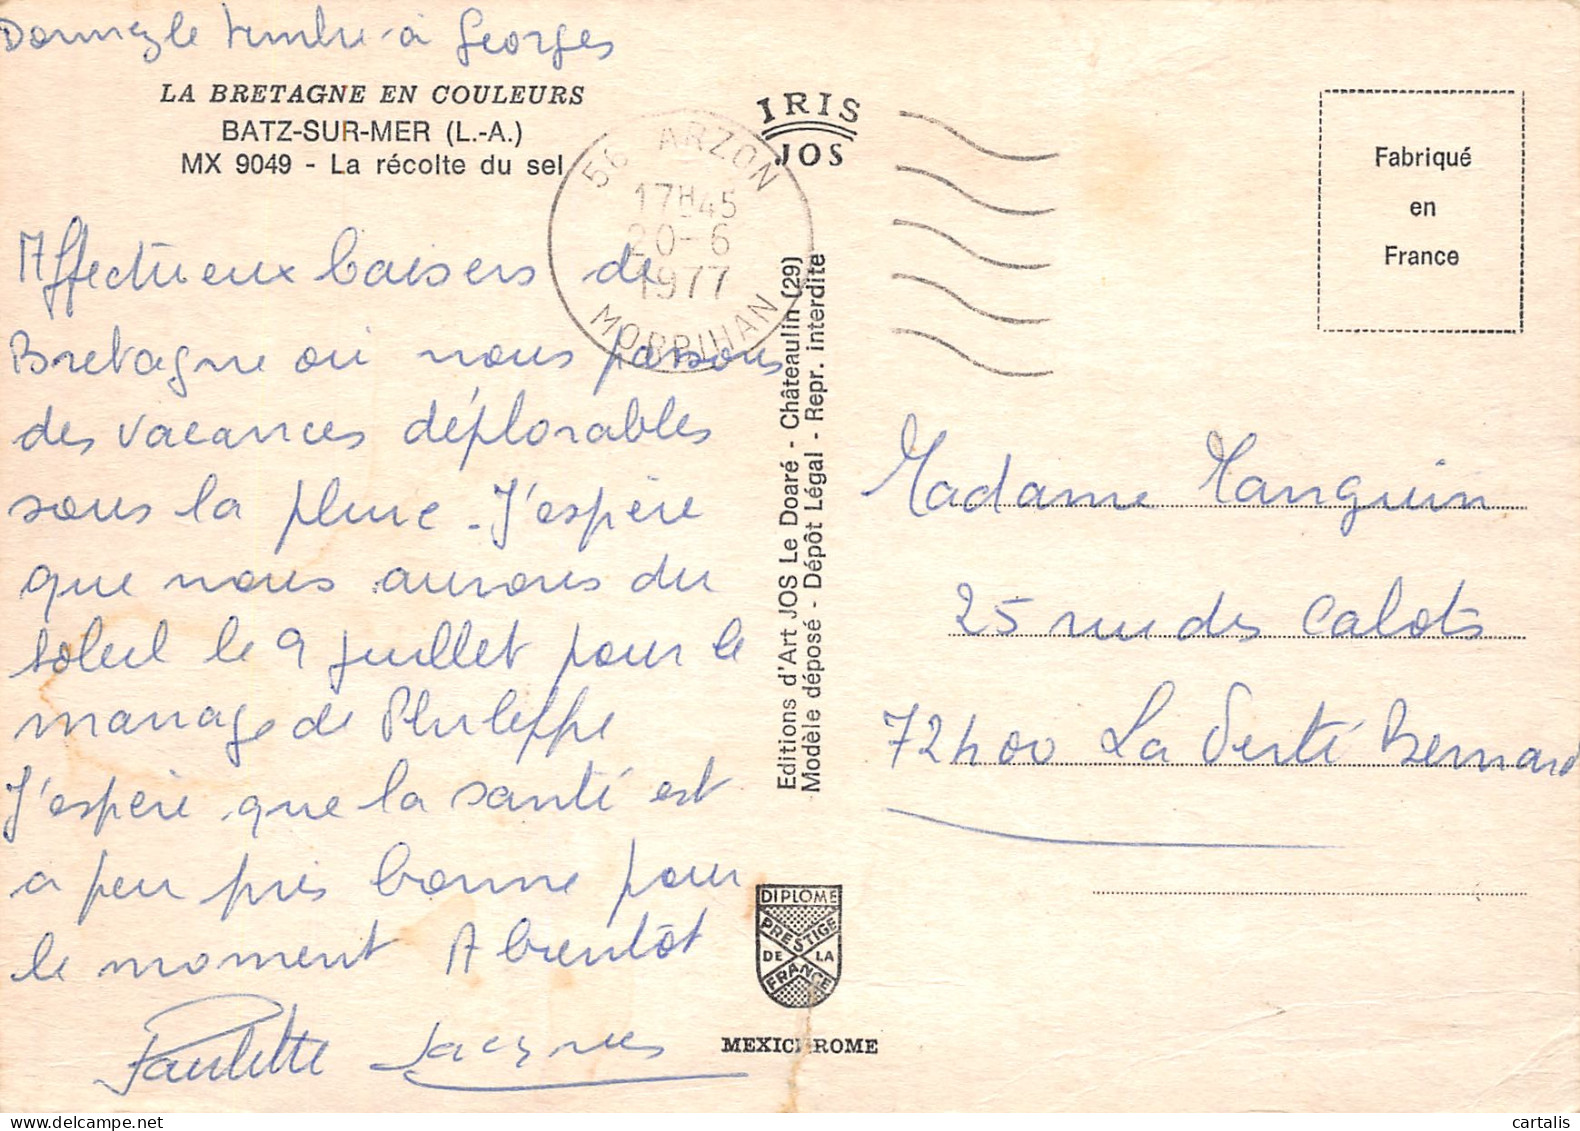 Donnez le timbre à Georges
LA BRETAGNE EN COULEURS
BATZ-SUR-MER (L.-A.)
MX 9049 - La récolte du sel
IRIS
JOS
56 ARZON
17H45
20-6
1977
MORBIHAN
Fabriqué
en
France
Affectueux baisers de
Bretagne où nous passons
des vacances déplorables
sous la pluie - J'espère
que nous aurons du
soleil le 9 juillet pour le
mariage de Philippe
J'espère que la santé est
a peu près bonne pour
le moment A bientôt
Paulette Jacques
Editions d'Art JOS Le Doaré - Châteaulin (29)
Modèle déposé - Dépôt Légal - Repr. interdite
Madame Manguin
25 rue des Calots
72400 La Ferté Bernard
DIPLOME
PRESTIGE
DE LA
FRANCE
MEXICHROME
cartalis